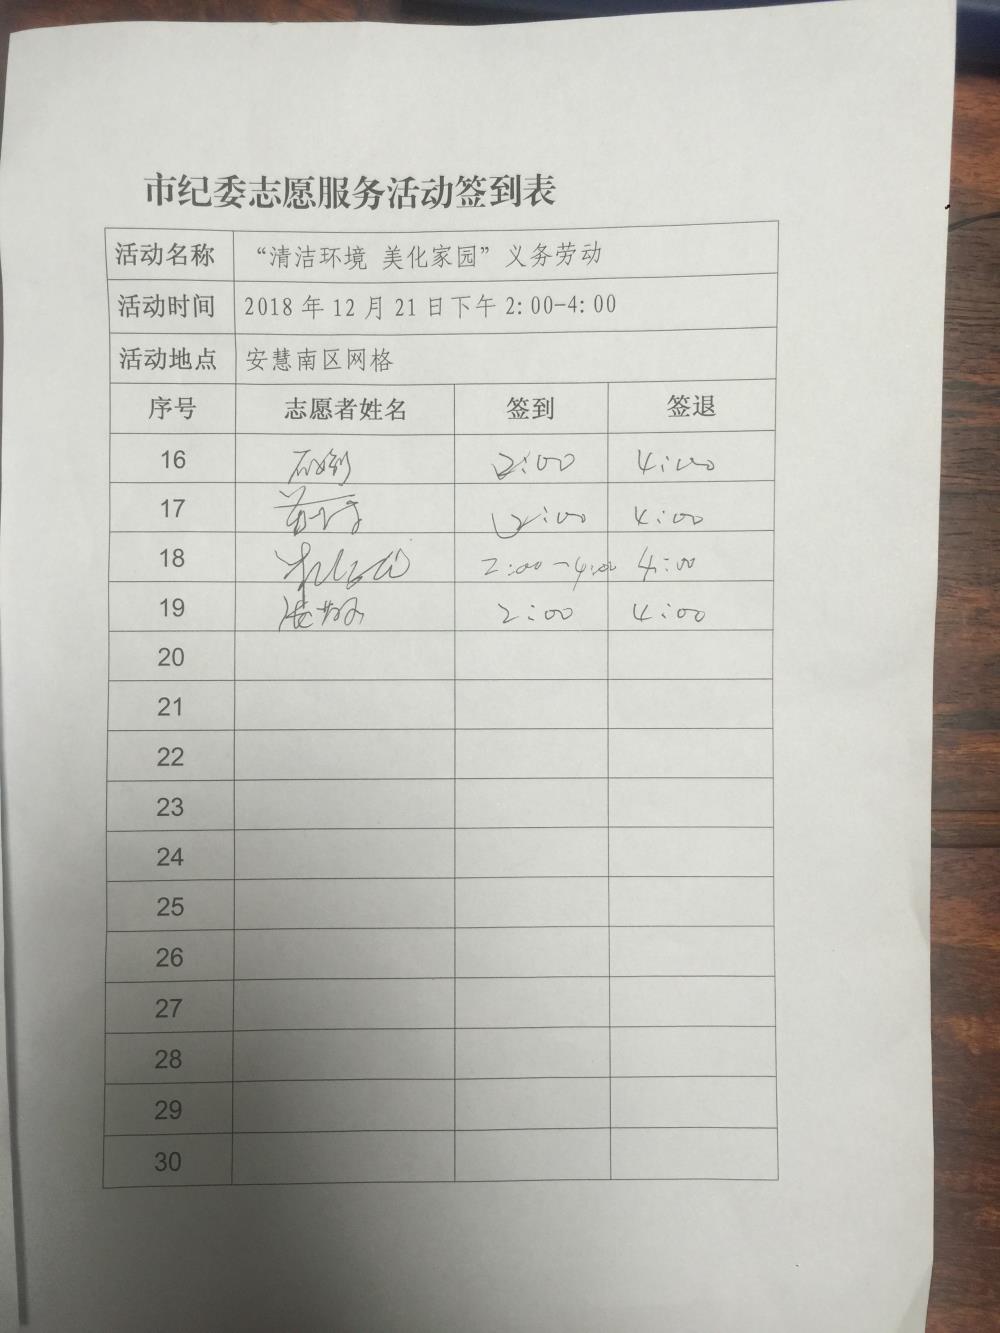 市纪委志愿服务活动签到表
活动名称 “清洁环境 美化家园”义务劳动
活动时间 2018年12月21日下午2:00-4:00
活动地点 安慧南区网格
序号 志愿者姓名 签到 签退
16 2:00 4:00
17 2:00 4:00
18 2:00-4:00 4:00
19 2:00 4:00
20
21
22
23
24
25
26
27
28
29
30